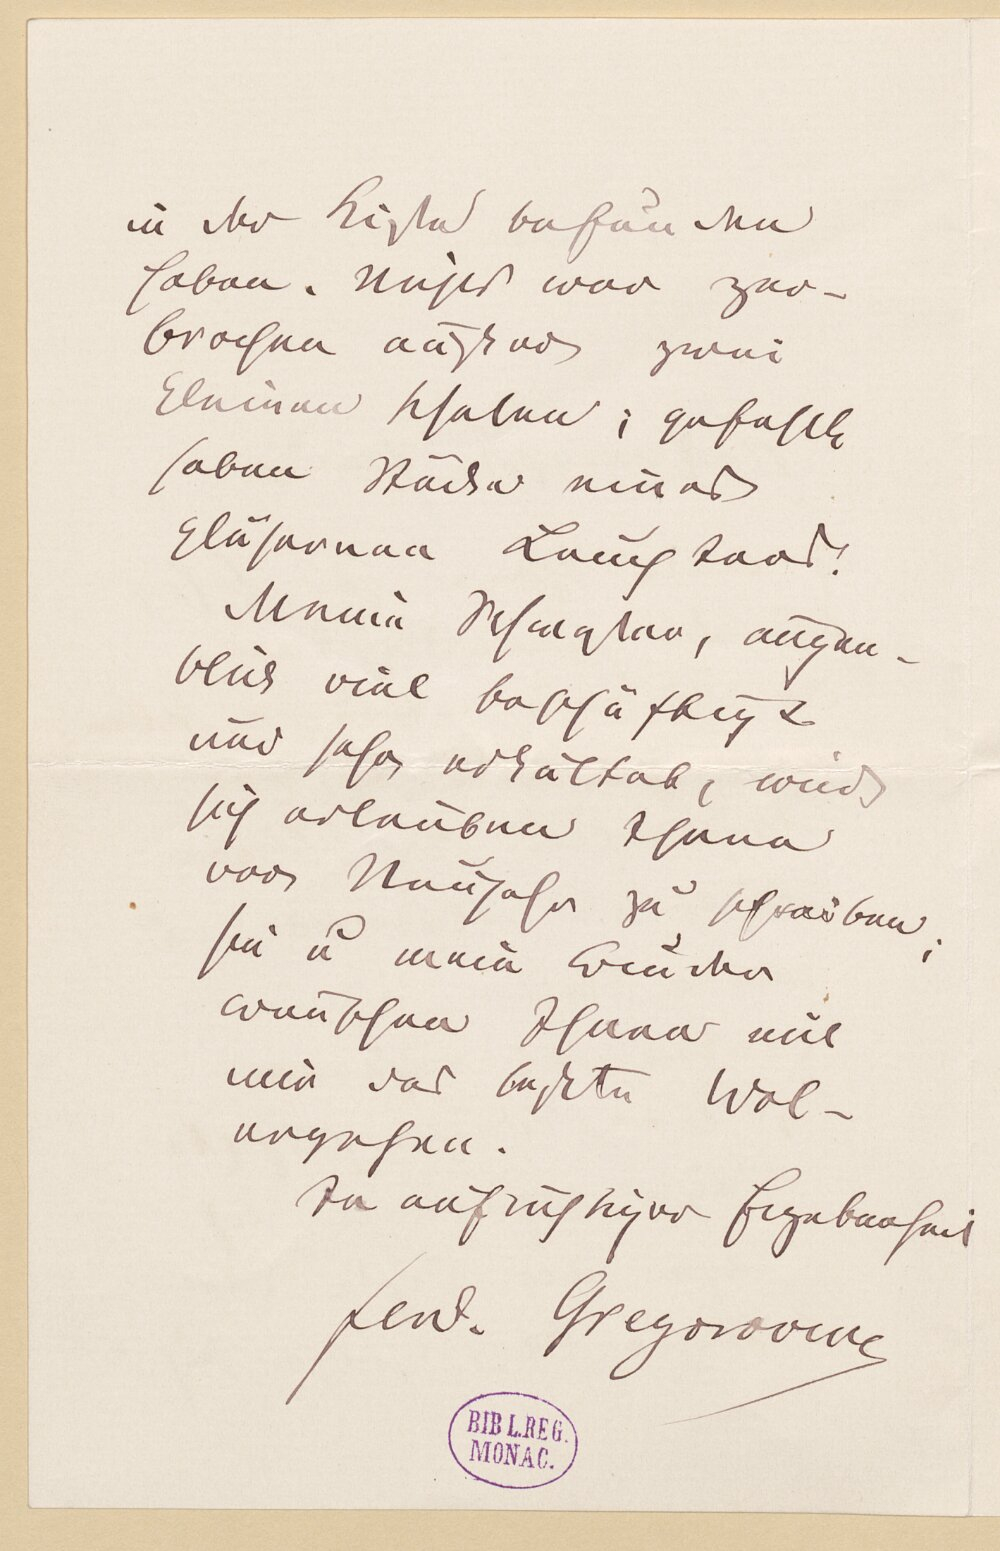 in der Kiste befunden
haben. Nichts war zer-
brochen außer zwei
kleinen Schalen; gefehlt
haben Stücke eines
gläsernen Leuchters!
Meine Schwester, augen-
blick viel beschäftigt
und sehr erkältet, wird
sich erlauben Ihnen
vor Neujahr zu schreiben;
sie u mein Bruder
wünschen Ihnen mit
mir das beste Wol-
ergehen.
In aufrichtiger Ergebenheit
Ferd. Gregorovius
BIBL.REG.
MONAC.